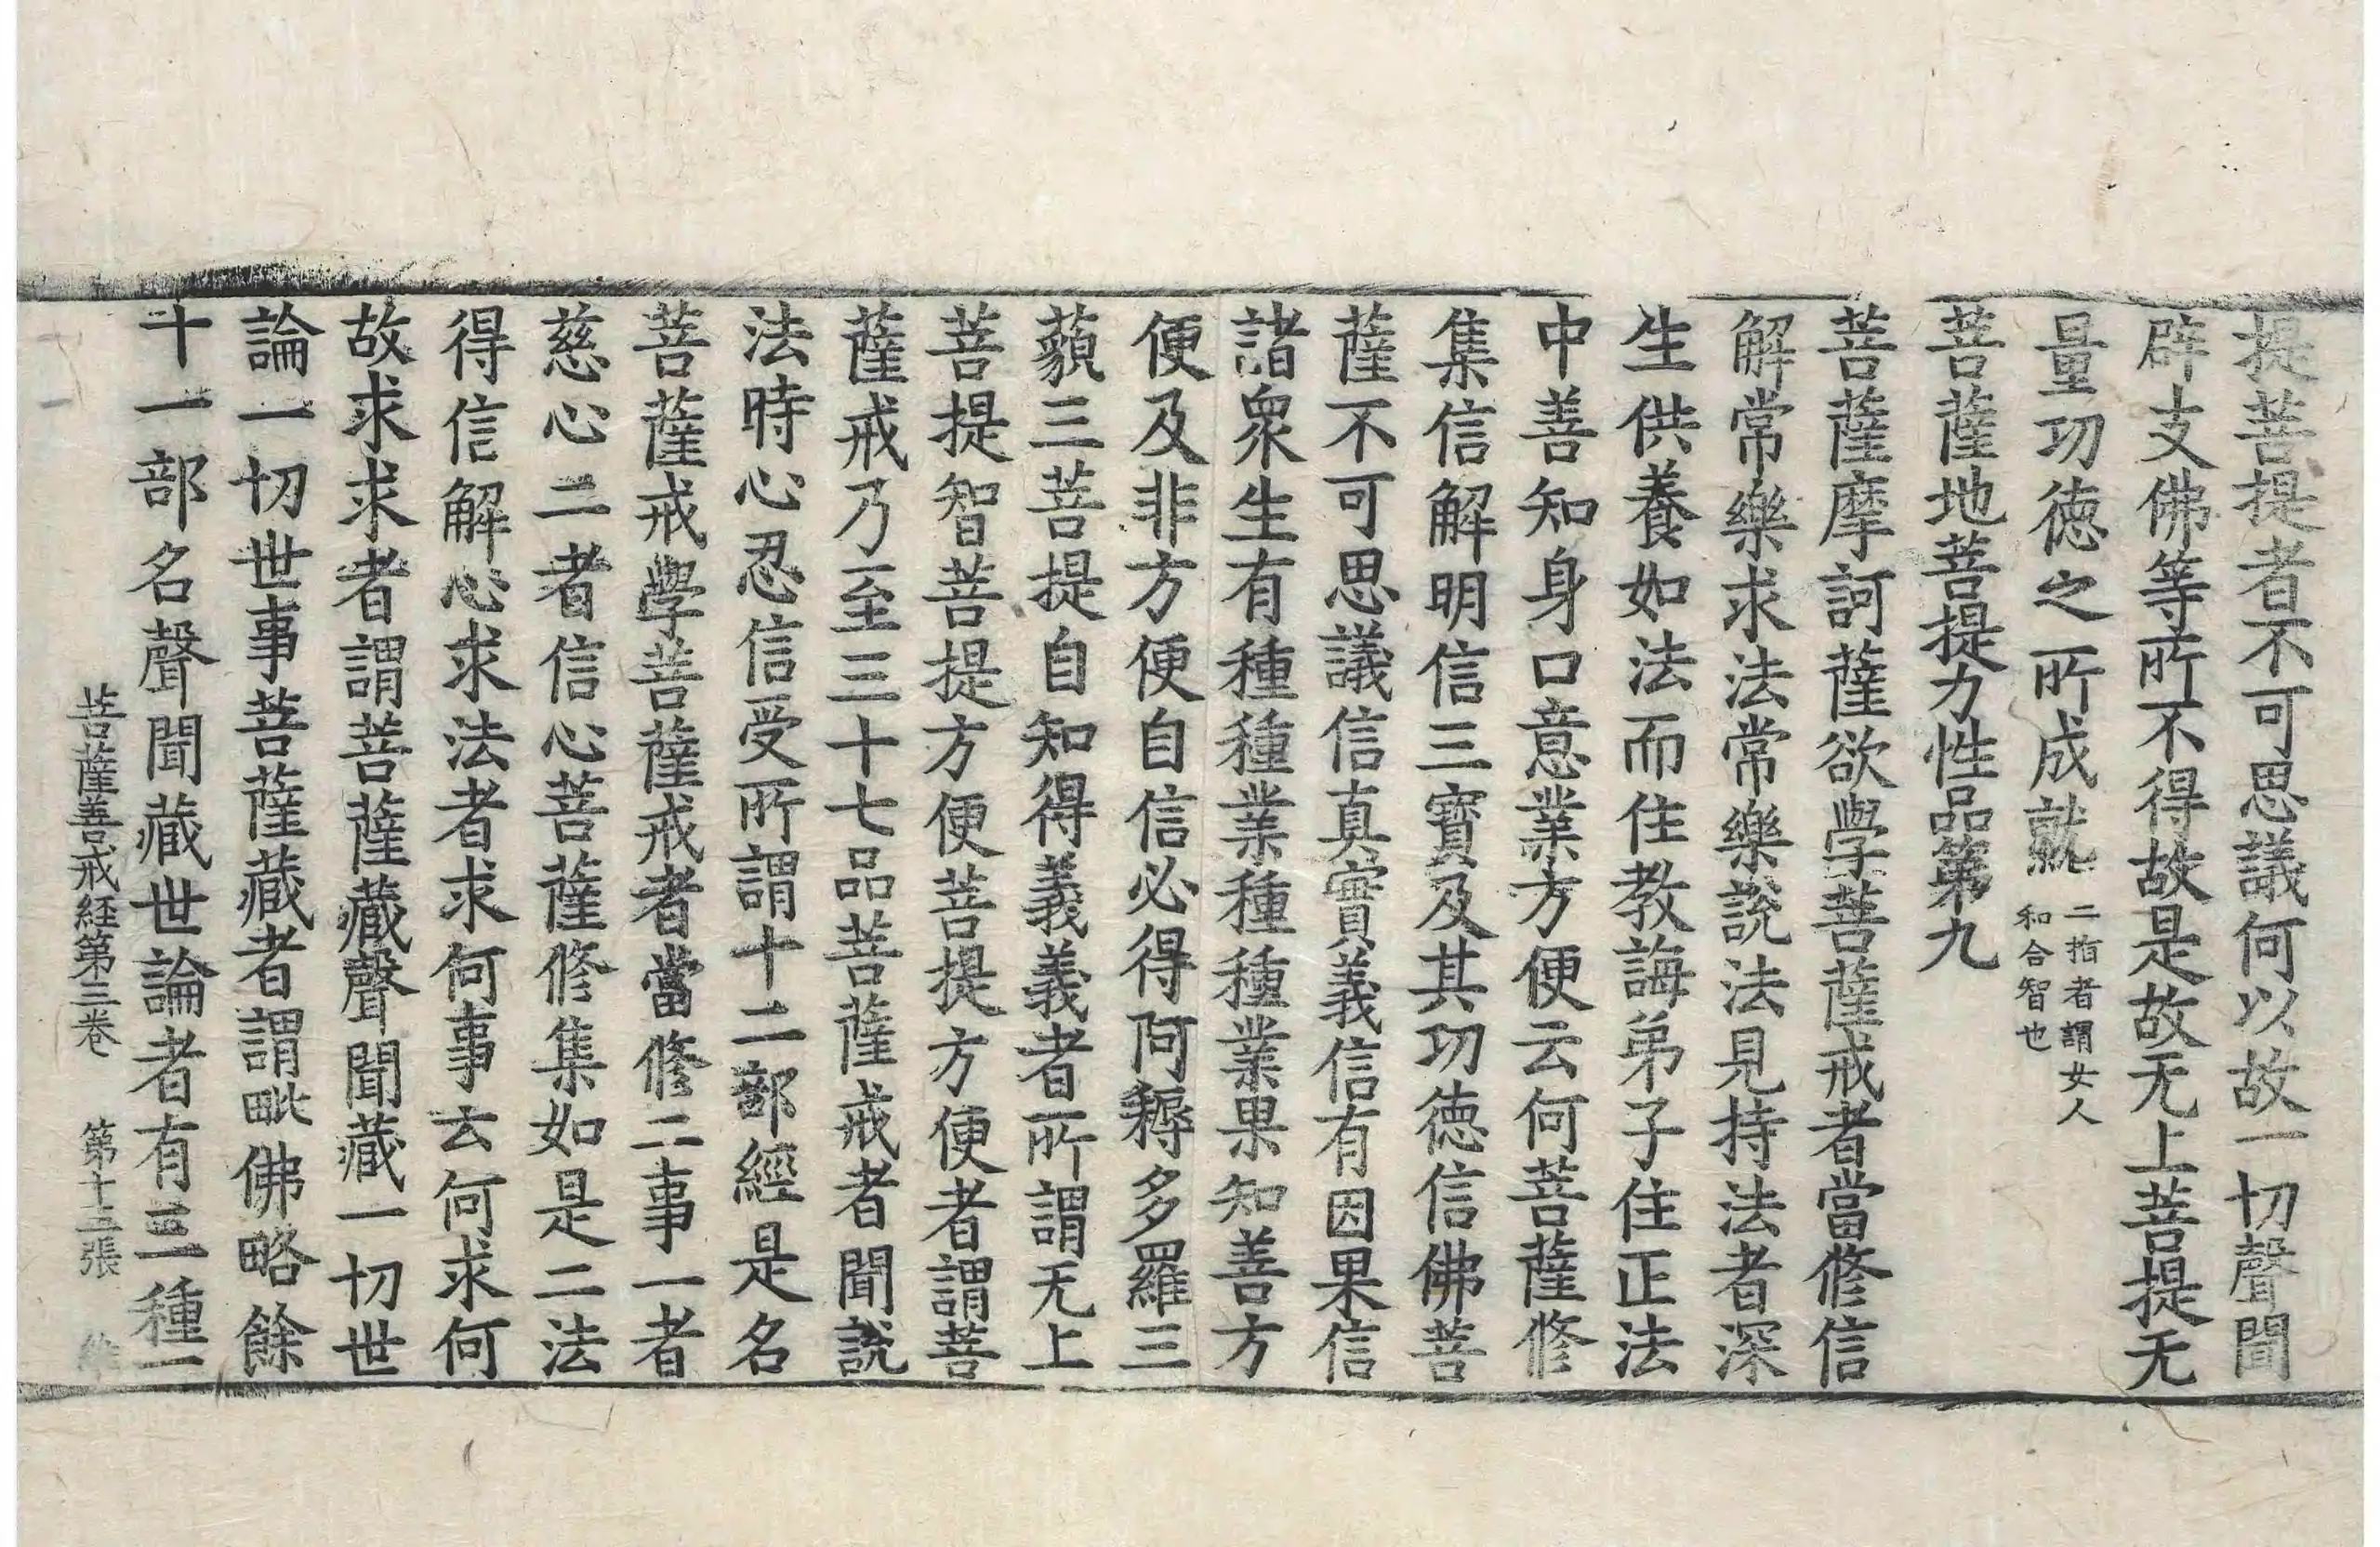 提菩提者不可思議何以故一切聲聞
辟支佛等所不得故是故无上菩提无
量功徳之所成就二指者謂女人
和合智也
菩薩地菩提力性品第九
菩薩摩訶薩欲學菩薩戒者當修信
解常樂求法常樂說法見持法者深
生供養如法而住教誨弟子住正法
中善知身口意業方便云何菩薩修
集信解明信三寶及其功徳信佛菩
薩不可思議信真實義信有因果信
諸衆生有種種業種種業果知善方
便及非方便自信必得阿耨多羅三
藐三菩提自知得義義者所謂无上
菩提智菩提方便菩提方便者謂菩
薩戒乃至三十七品菩薩戒者聞說
法時心忍信受所謂十二部經是名
菩薩戒學菩薩戒者當修二事一者
慈心二者信心菩薩修集如是二法
得信解心求法者求何事云何求何
故求求者謂菩薩藏聲聞藏一切世
論一切世事菩薩藏者謂毗佛略餘
十一部名聲聞藏世論者有三種一
菩薩善戒経第三卷 第十五張